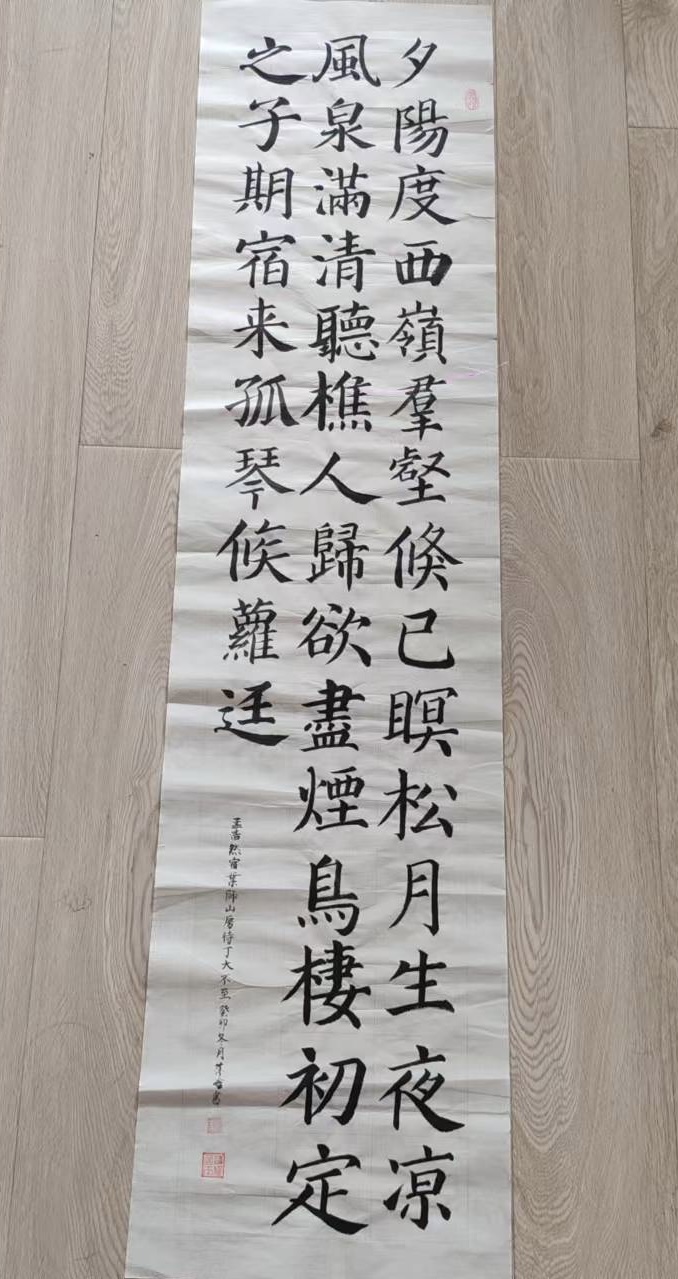 夕陽度西嶺羣壑倏已瞑松月生夜凉
風泉滿清聽樵人歸欲盡煙鳥棲初定
之子期宿来孤琴候蘿迳
孟浩然宿業師山房待丁大不至 癸卯冬月